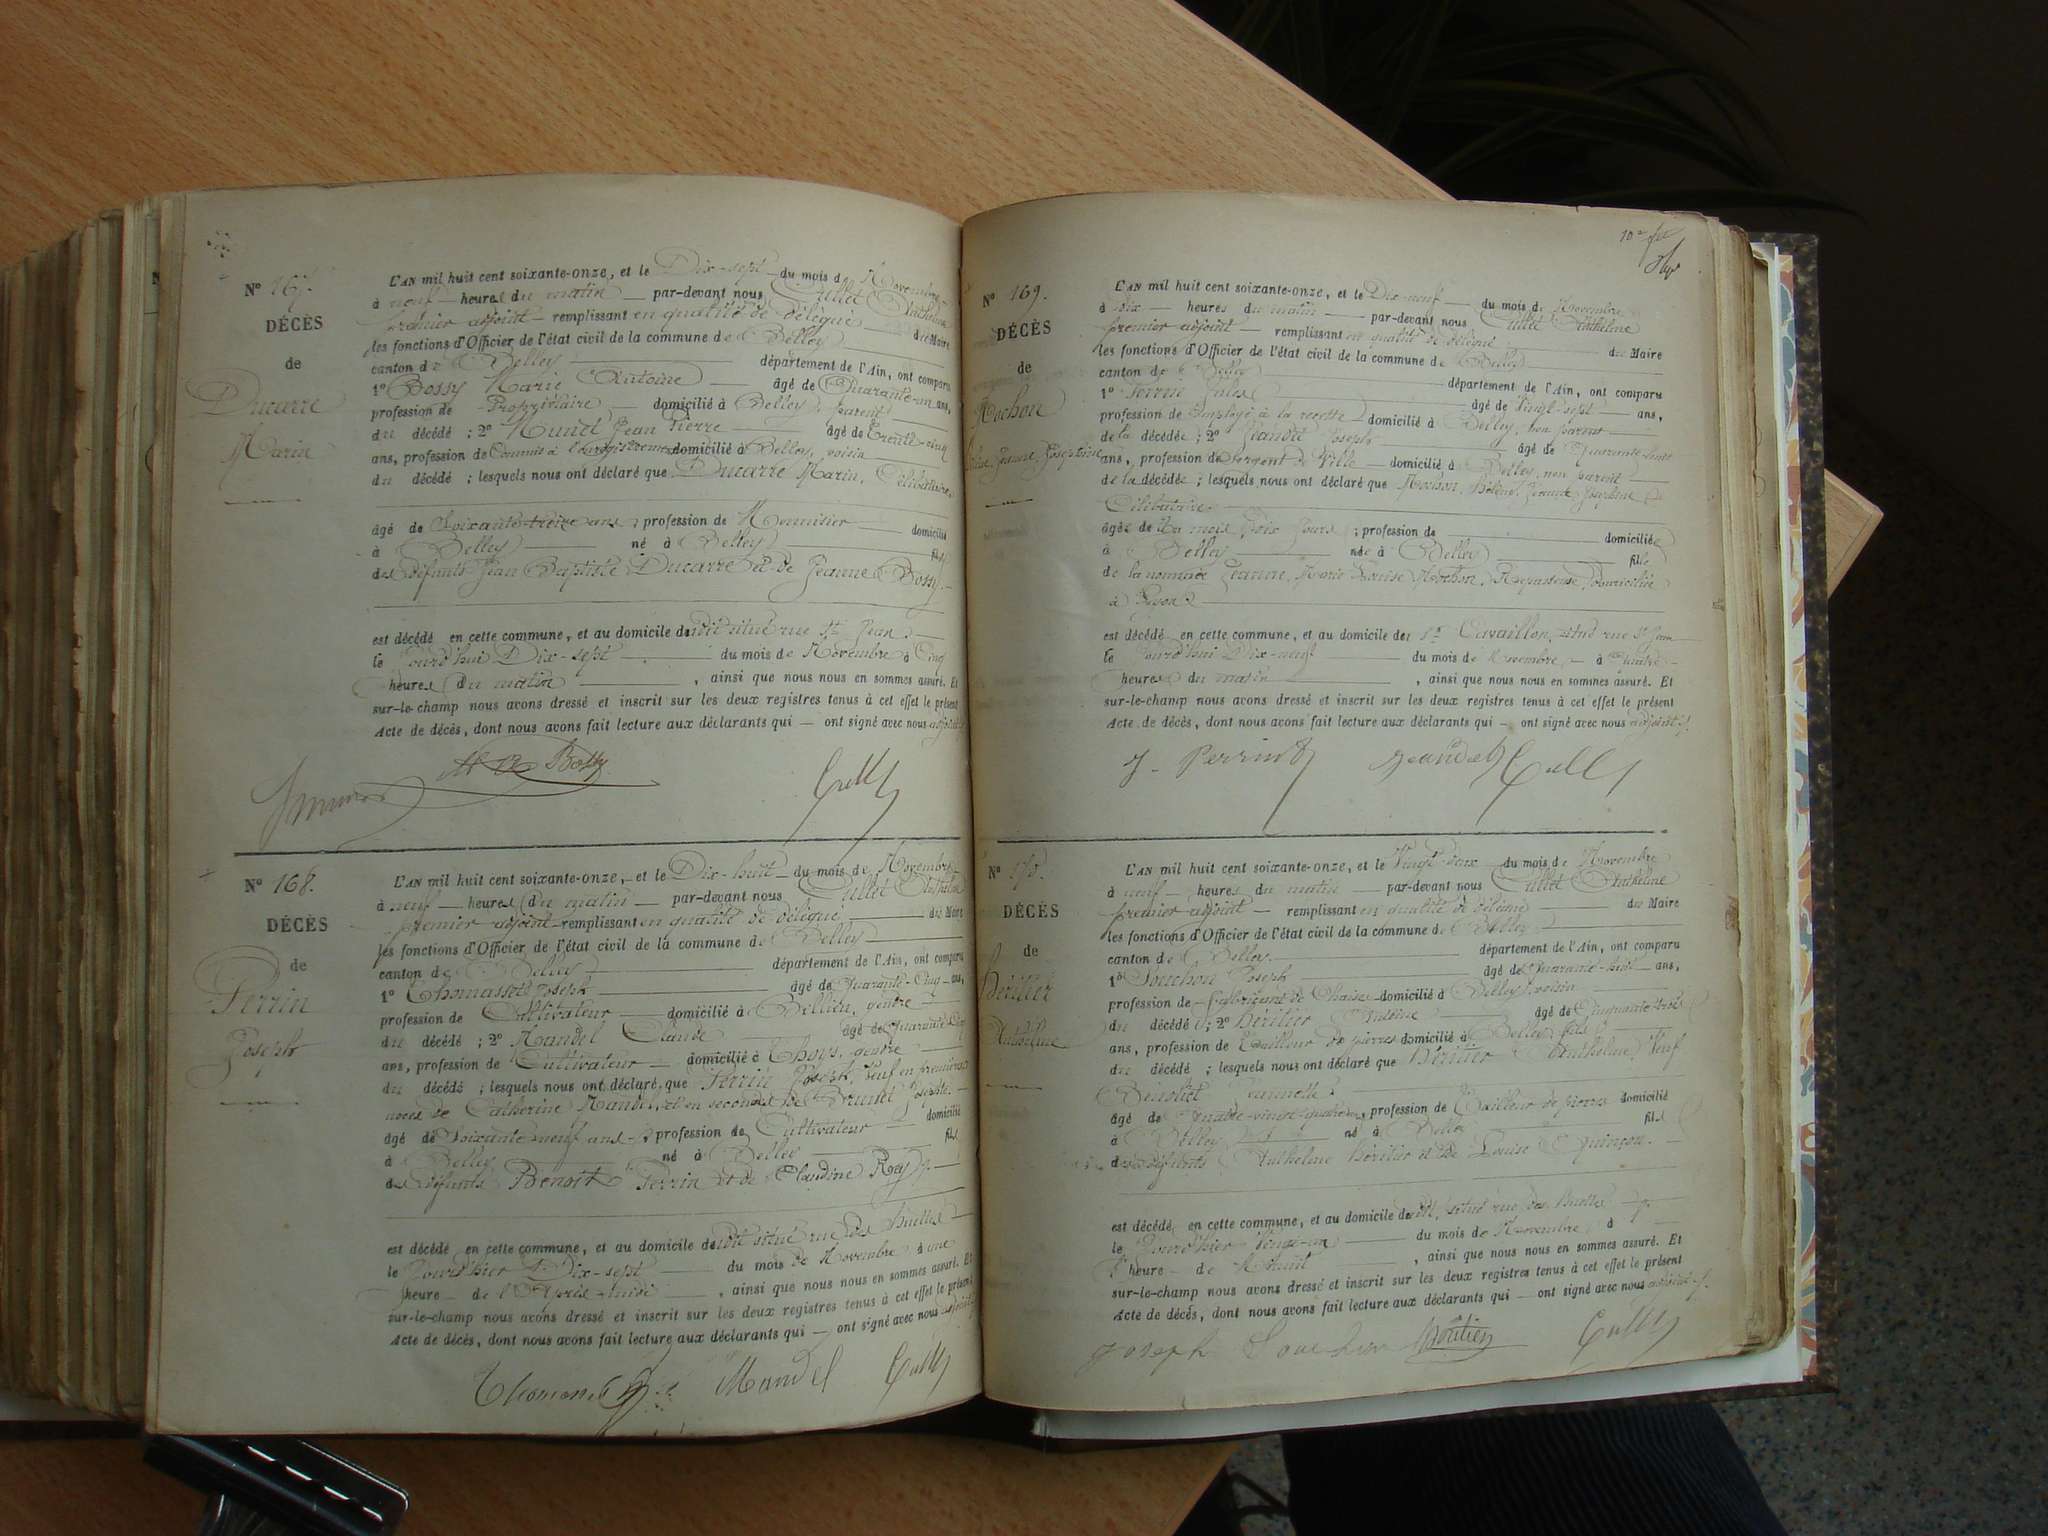 N° 167.
DÉCÈS
de
Ducarre
Marin
L'AN mil huit cent soixante-onze, et le Dix-sept du mois de Novembre
à neuf heures du matin par-devant nous Cullet Anthelme
premier adjoint remplissant en qualité de délégué du Maire
les fonctions d'Officier de l'état civil de la commune de Belley
canton de Belley département de l'Ain, ont comparu
1° Bossy Marie Antoine âgé de Quarante-un ans,
profession de Propriétaire domicilié à Belley, parent
du décédé ; 2° Jean Pierre âgé de Trente-cinq
ans, profession de Commis à l'enregistrement domicilié à Belley, voisin
du décédé ; lesquels nous ont déclaré que Ducarre Marin, Célibataire,
âgé de Soixante-treize ans ; profession de Menuisier domicilié
à Belley né à Belley fils
des défunts Jean Baptiste Ducarre et de Jeanne Bossy.
est décédé en cette commune, et au domicile dudit situé rue St Jean
le jourd'hui Dix-sept du mois de Novembre à Cinq
heures du matin , ainsi que nous nous en sommes assuré. Et
sur-le-champ nous avons dressé et inscrit sur les deux registres tenus à cet effet le présent
Acte de décès, dont nous avons fait lecture aux déclarants qui ont signé avec nous adjoint
Bossy Cullet
N° 168.
DÉCÈS
de
Perrin
Joseph
L'AN mil huit cent soixante-onze, et le Dix-huit du mois de Novembre
à neuf heures du matin par-devant nous Cullet Anthelme
premier adjoint remplissant en qualité de délégué du Maire
les fonctions d'Officier de l'état civil de la commune de Belley
canton de Belley département de l'Ain, ont comparu
1° Thomasset Joseph âgé de Quarante-Cinq ans,
profession de Cultivateur domicilié à gendre
du décédé ; 2° Mandel Claude âgé de Quarante
ans, profession de Cultivateur domicilié à Thoys, gendre
du décédé ; lesquels nous ont déclaré que Perrin Joseph, Veuf en premières
noces de Catherine Mandel, et en secondes de Brunet Josephte
âgé de Soixante-neuf ans ; profession de Cultivateur domicilié
à Belley né à Belley fils
des défunts Benoit Perrin et de Claudine Rey
est décédé en cette commune, et au domicile dudit situé rue des
le jourd'hier Dix-sept du mois de Novembre à une
heure de l'Après-midi , ainsi que nous nous en sommes assuré. Et
sur-le-champ nous avons dressé et inscrit sur les deux registres tenus à cet effet le présent
Acte de décès, dont nous avons fait lecture aux déclarants qui ont signé avec nous adjoint
Thomasset Mandel Cullet
N° 169.
DÉCÈS
de
Rochon
Jeanne Joséphine
L'AN mil huit cent soixante-onze, et le Dix-neuf du mois de Novembre
à dix heures du matin par-devant nous Cullet Anthelme
premier adjoint remplissant en qualité de délégué du Maire
les fonctions d'Officier de l'état civil de la commune de Belley
canton de Belley département de l'Ain, ont comparu
1° Perrin Jules âgé de Vingt-sept ans,
profession de Employé à la recette domicilié à Belley, non parent
de la décédée ; 2° Jeandet Joseph âgé de Quarante
ans, profession de Sergent de Ville domicilié à Belley, non parent
de la décédée ; lesquels nous ont déclaré que Rochon, Jeanne Joséphine
Célibataire
âgée de mois Dix Jours ; profession de domiciliée
à Belley née à Belley fille
de la nommée Jeanne, Marie Louise Rochon, Repasseuse, domiciliée
à Lyon
est décédé en cette commune, et au domicile de Cavaillon, situé rue St Jean
le jourd'hui Dix-neuf du mois de Novembre à Quatre
heures du matin , ainsi que nous nous en sommes assuré. Et
sur-le-champ nous avons dressé et inscrit sur les deux registres tenus à cet effet le présent
Acte de décès, dont nous avons fait lecture aux déclarants qui ont signé avec nous adjoint
J. Perrin Jeandet Cullet
N° 170.
DÉCÈS
de
Héritier
Anthelme
L'AN mil huit cent soixante-onze, et le Vingt-deux du mois de Novembre
à neuf heures du matin par-devant nous Cullet Anthelme
premier adjoint remplissant en qualité de délégué du Maire
les fonctions d'Officier de l'état civil de la commune de Belley
canton de Belley département de l'Ain, ont comparu
1° Souchon Joseph âgé de Quarante-huit ans,
profession de Fabricant de Chaises domicilié à Belley, voisin
du décédé ; 2° Héritier Antoine âgé de Cinquante-trois
ans, profession de Tailleur de pierres domicilié à Belley, fils
du décédé ; lesquels nous ont déclaré que Héritier Anthelme, Veuf
Benoîte
âgé de Quatre-vingt-quatre , profession de Tailleur de pierres domicilié
à Belley né à Belley fils
des défunts Anthelme Héritier et de Louise Quinçon.
est décédé en cette commune, et au domicile dudit, situé rue des
le jourd'hier Vingt-un du mois de Novembre à
l'heure de Minuit , ainsi que nous nous en sommes assuré. Et
sur-le-champ nous avons dressé et inscrit sur les deux registres tenus à cet effet le présent
Acte de décès, dont nous avons fait lecture aux déclarants qui ont signé avec nous adjoint
Joseph Souchon Héritier Cullet